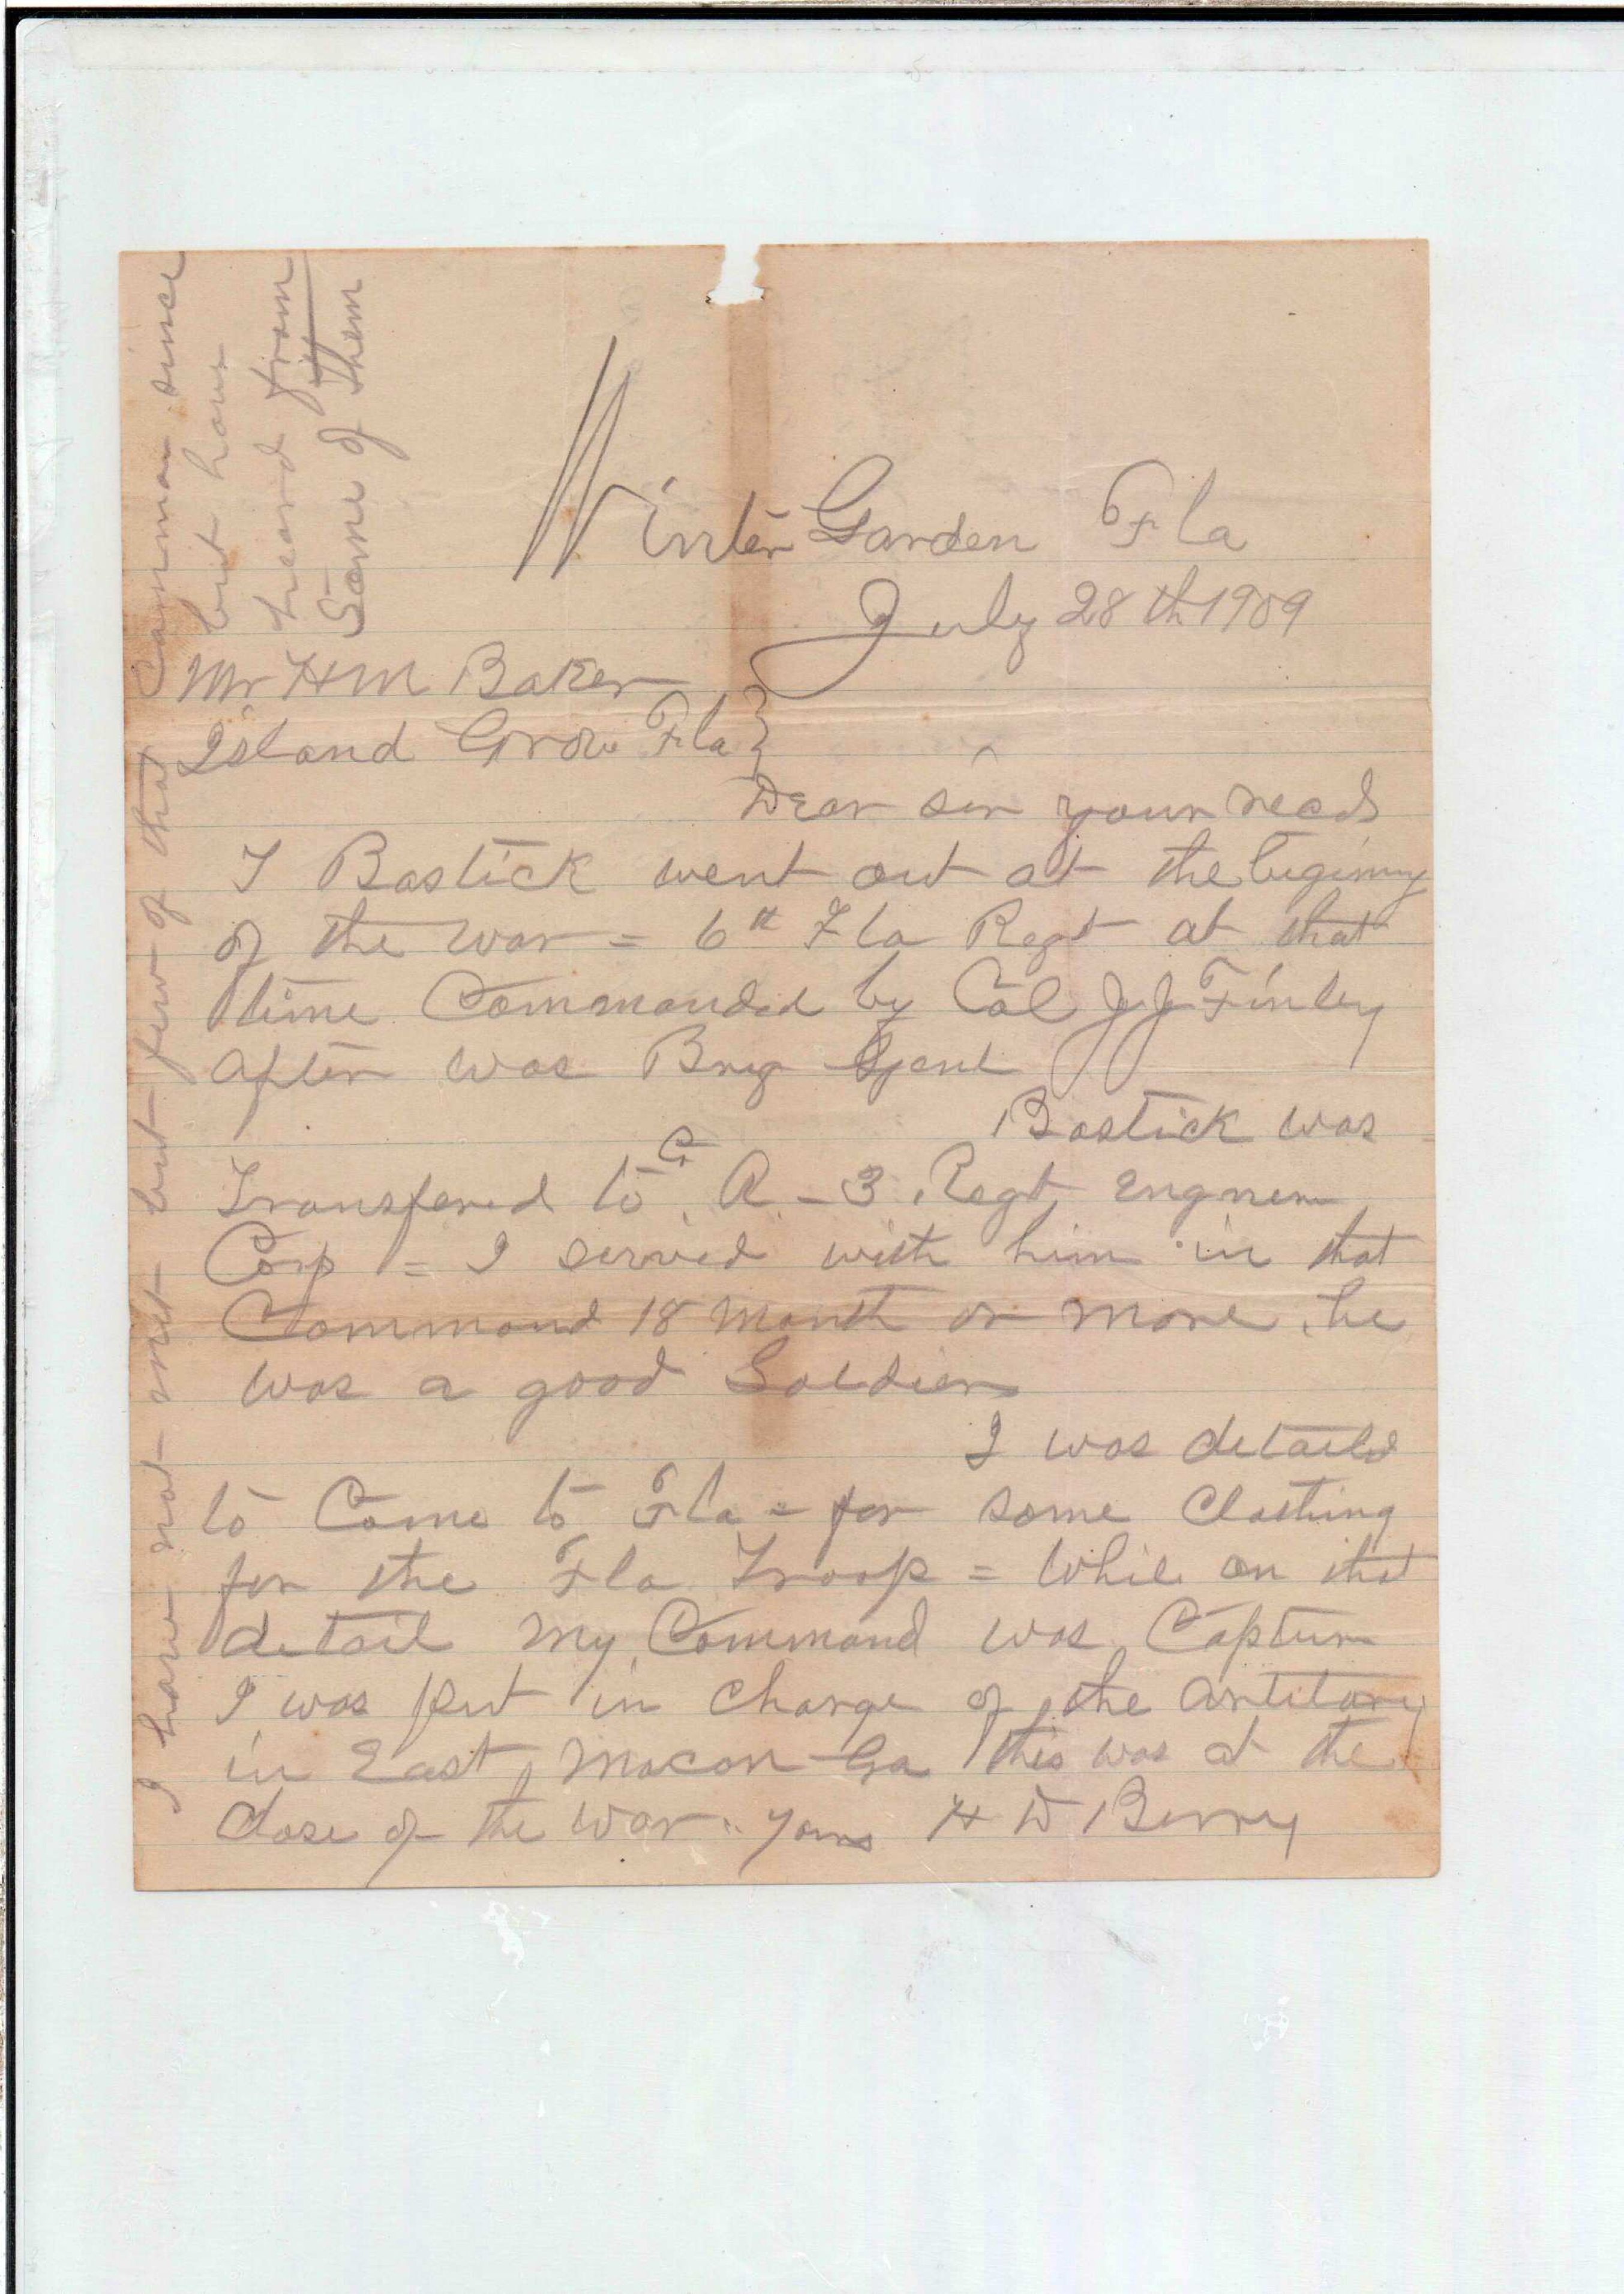 Winter Garden Fla
July 28th 1909
Mr H M Baker
Island Grove Fla }
Dear sir your recd
I Bostick went out at the beginny
of the war = 6th Fla Regt at that
time Commanded by Col J J Finley
after was Brig Genl
Bostick was
Transfered to Co A - 3 Regt Engneer
Corp = I served with him in that
Command 18 month or more. he
was a good Soldier
I was detaild
to Come to Fla = for some Clothing
for the Fla Troop = While on that
detail my Command was Capture
I was put in charge of the artilary
in East Macon Ga this was at the
close of the war .. yours H D Berry
I have not met but few of that
Comman since
but have
heard from
Some of them